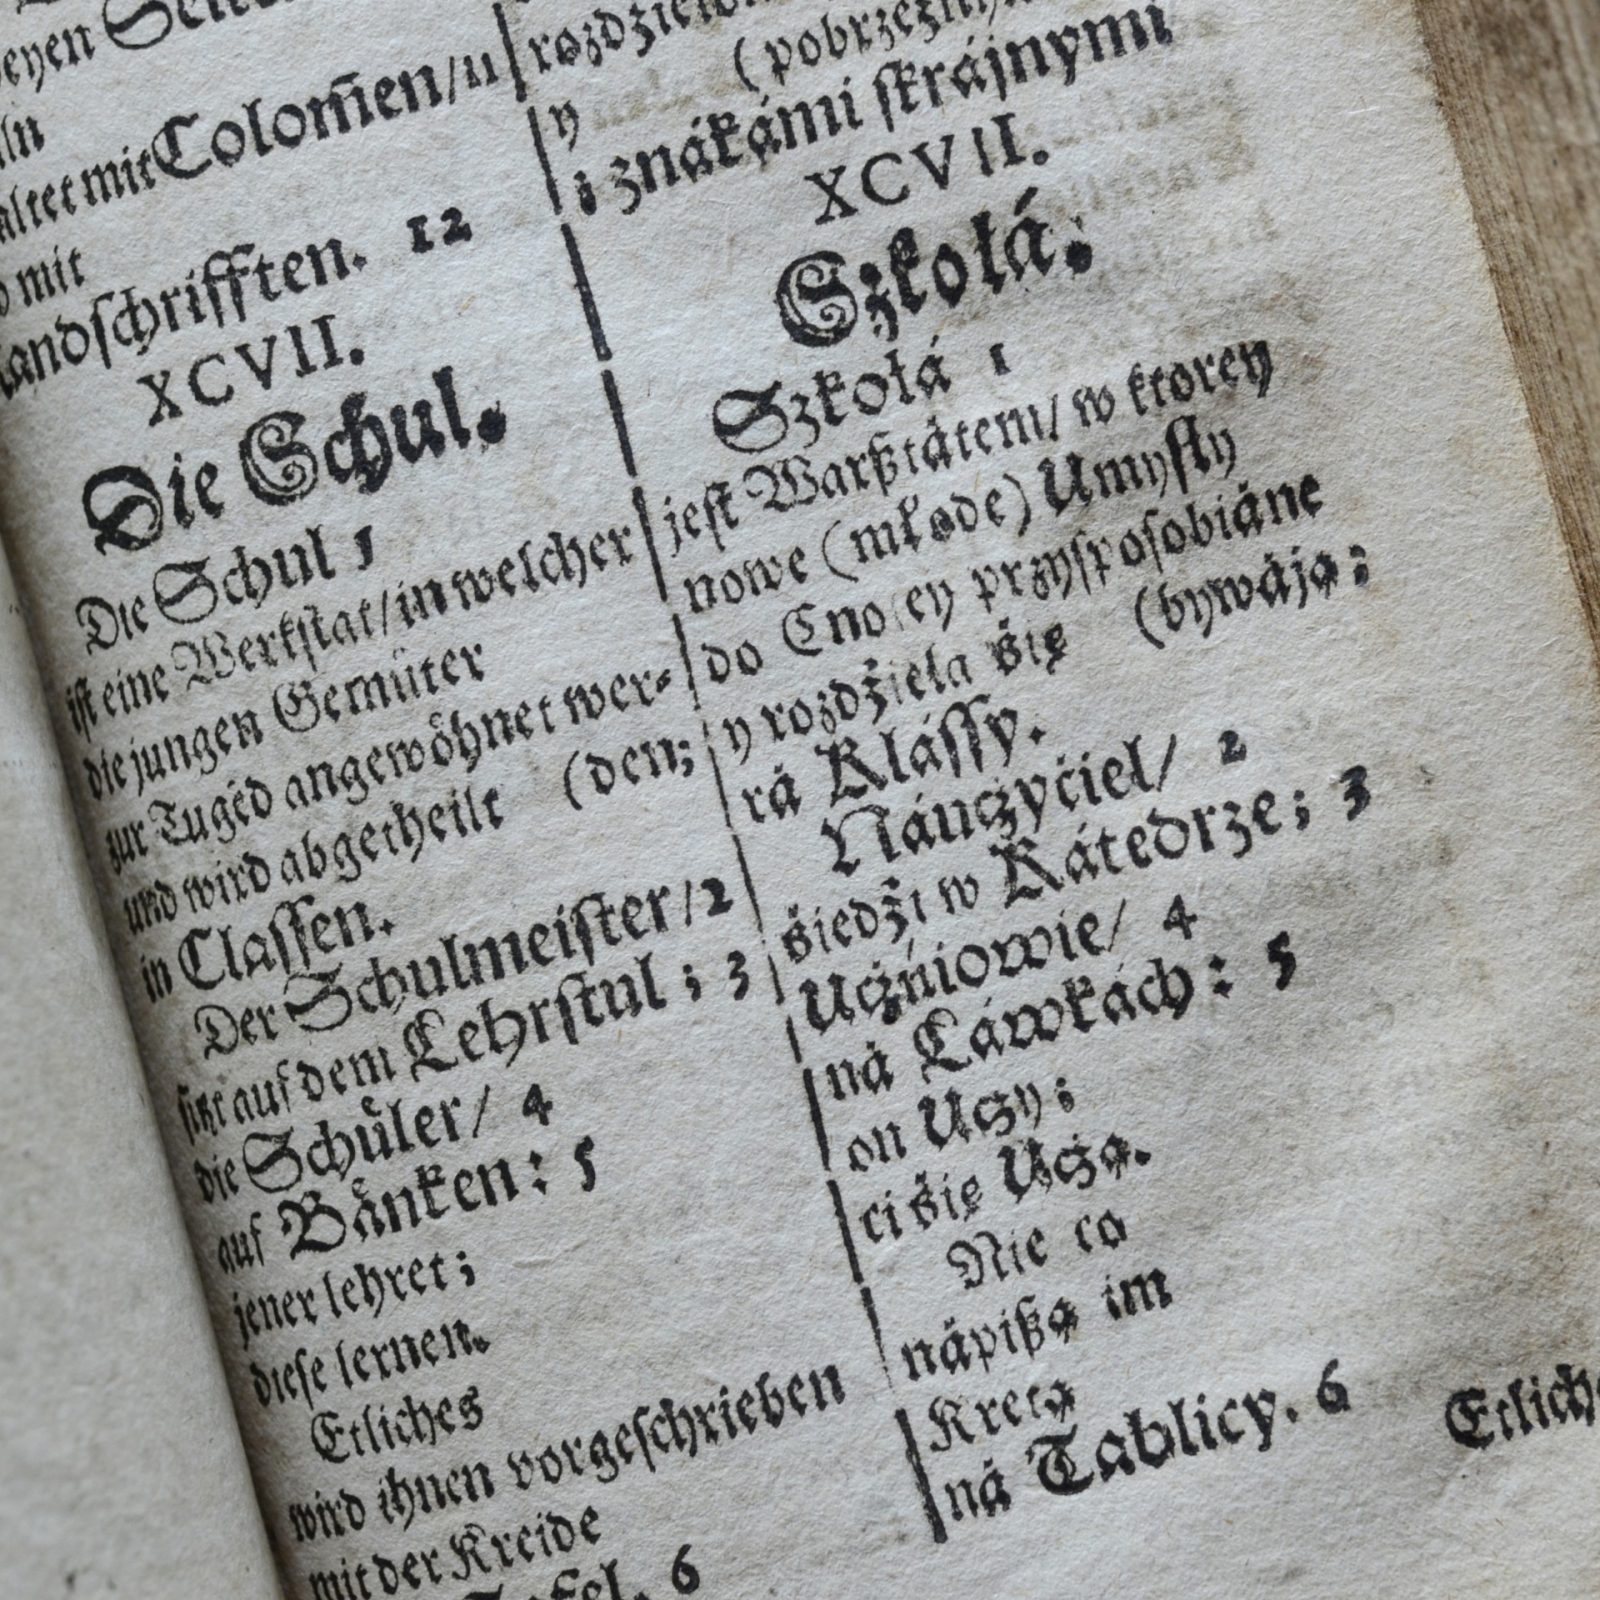 mit Colom̃en/ u
mit
landschrifften. 12
XCVII.
Die Schul.
Die Schul 1
ist eine Werkstat/ in welcher
die jungen Gemüter
zur Tugẽd angewöhnet wer-
und wird abgetheilt (den;
in Classen.
Der Schulmeister/ 2
sitzt auf dem Lehrstul; 3
die Schüler/ 4
auf Bänken: 5
jener lehret;
diese lernen.
Etliches
wird ihnen vorgeschrieben
mit der Kreide
Tafel. 6
y
z znákámi skrájnymi
XCVII.
Szkołá.
Szkołá 1
jest Warßtátem/ w ktorey
nowe (młode) Umysły
do Cnotey przysposobiáne
y rozdźiela śię (bywáją:
ná Klássy.
Náuczyćiel/ 2
śiedźi w Kátedrze; 3
Uczniowie/ 4
ná Ławkách: 5
on Uczy;
ci śię Uczą.
Nie co
nápißą im
Kretą
ná Tablicy. 6
Etlich